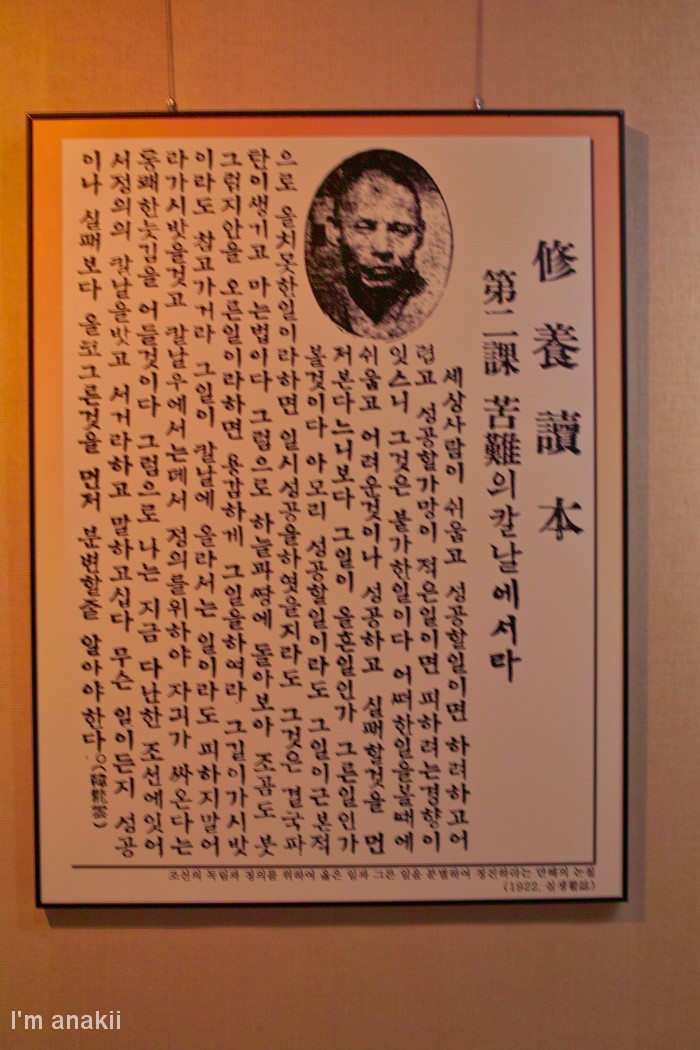 修養讀本
第二課 苦難의칼날에서라
세상사람이 쉬웁고 성공할일이면 하려하고어
렵고 성공할가망이 적은일이면 피하려는경향이
잇스니 그것은 불가한일이다 어떠한일을볼때에
쉬웁고 어려운것이나 성공하고 실패할것을 먼
저본다느니보다 그일이 올흔일인가 그른일인가
볼것이다 아모리 성공할일이라도 그일이근본적
으로 올치못한일이라하면 일시성공을하엿을지라도 그것은 결국파
탄이생기고 마는법이다 그럼으로 하늘과땅에 돌아보아 조곰도 붓
그럽지안을 오른일이라하면 용감하게 그일을하여라 그길이가시밧
이라도 참고가거라 그일이 칼날에 올라서는 일이라도 피하지말어
라가시밧을것고 칼날우에서는데서 정의를위하야 자긔가 싸온다는
통쾌한늣김을 어들것이다 그럼으로 나는 지금 다난한 조선에잇어
서정의의 칼날을밧고 서거라하고 말하고십다 무슨 일이든지 성공
이나 실패보다 올코그른것을 먼저 분변할줄 알아야한다。(韓龍雲)
조선의 독립과 정의를 위하여 옳은 일과 그른 일을 분별하여 정진하라는 만해의 논설
(1922, 실생활誌)
I'm anakii